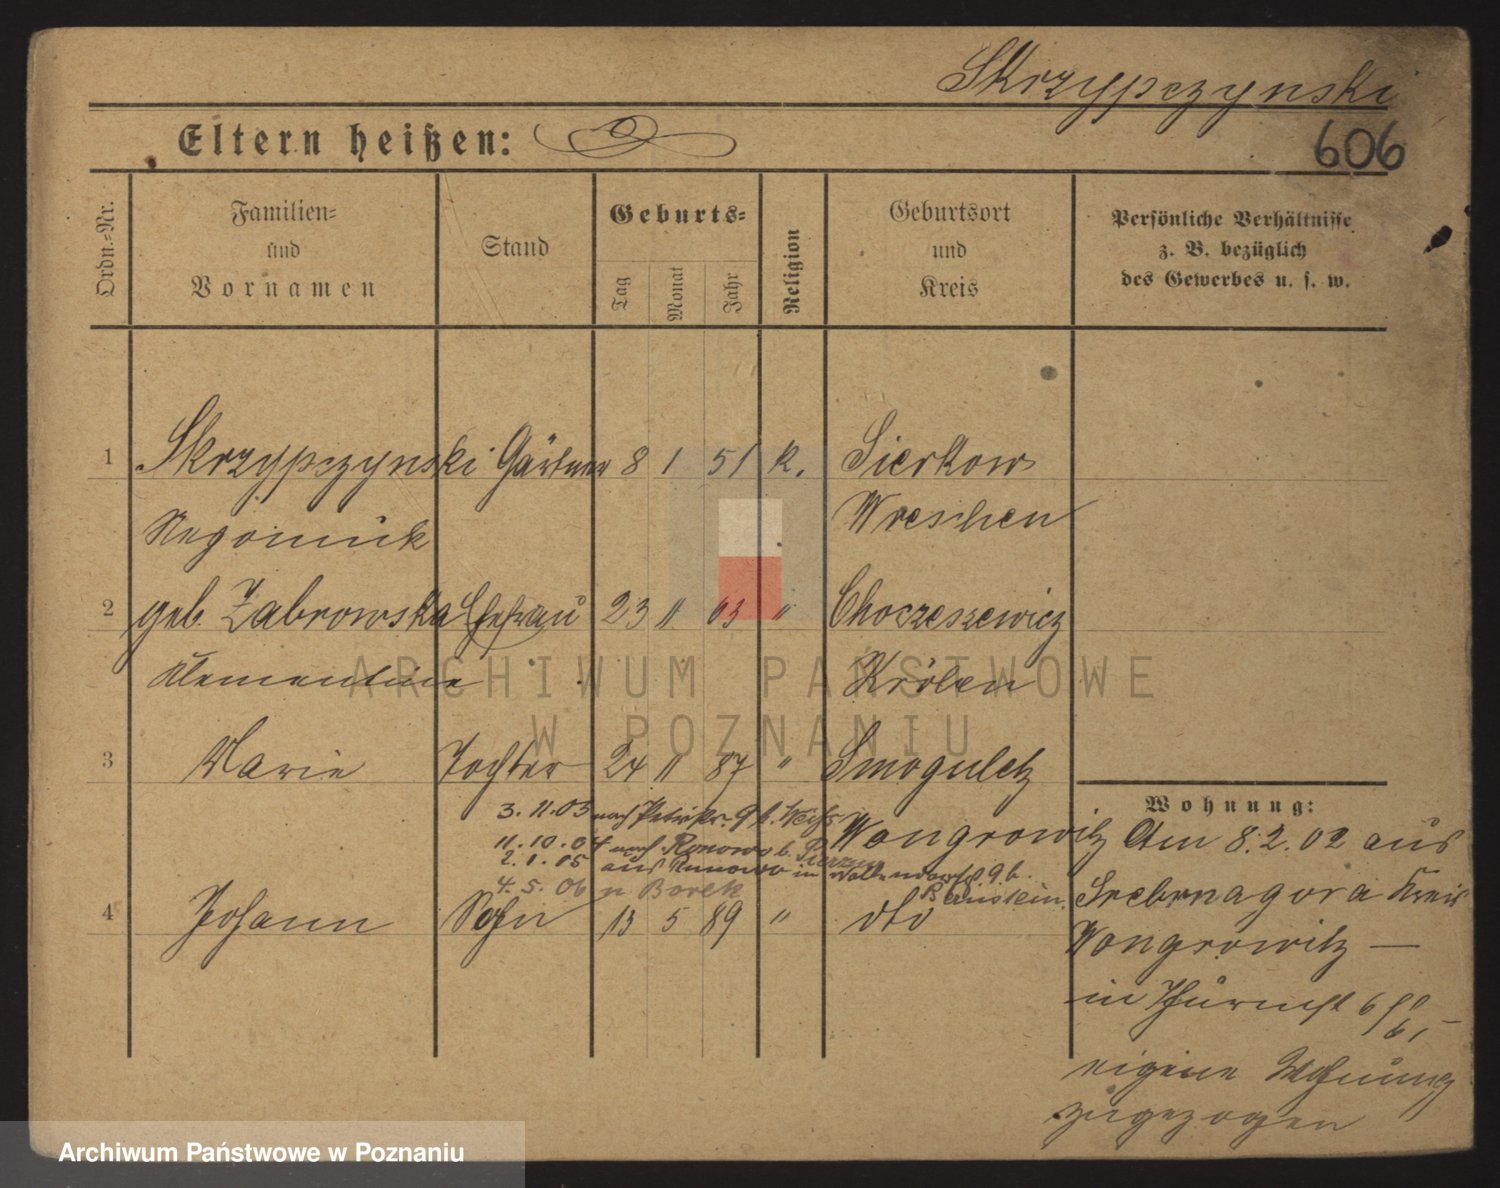 Skrzypczynski
606
Eltern heißen:
Ordn.-Nr.
Familien-
und
Vornamen
Stand
Geburts-
Tag
Monat
Jahr
Religion
Geburtsort
und
Kreis
Persönliche Verhältnisse
z. B. bezüglich
des Gewerbes u. s. w.
1 Skrzypczynski Gärtner 8 1 51 k. Sierkow
Wreschen
2 geb. Zabrowska Ehefrau 23 " 63 " Choczeszewicz
Klementine Kröben
3 Marie Tochter 24 " 87 " Smoguletz
Wongrowitz
3.11.03 nach
11.10.04 nach Ronowo b.
2.1.05 aus Runowo in
4.5.06 n Borek
4 Johann Sohn 13 5 89 " dto
Wohnung:
Am 8.2.02 aus
Srebrnagora Kreis
Wongrowitz —
in
eigene Wohnung
zugezogen
ARCHIWUM PAŃSTWOWE
W POZNANIU
Archiwum Państwowe w Poznaniu